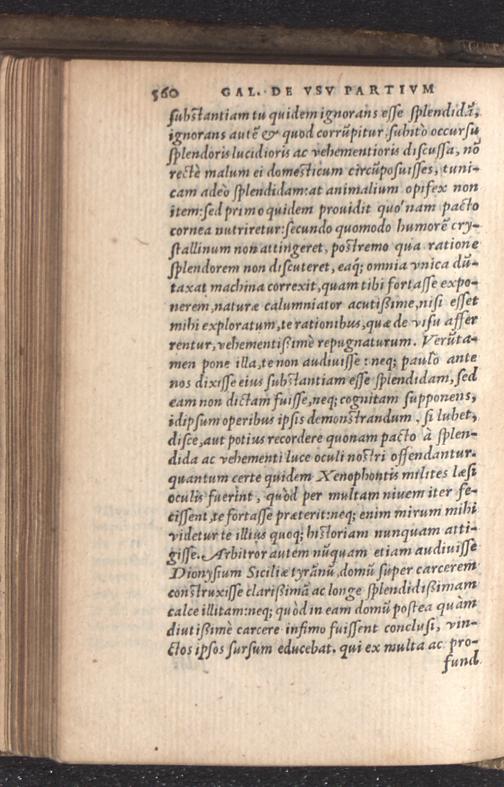 560 GAL. DE VSV PARTIVM
substantiam tu quidem ignorans esse splendidã,
ignorans autẽ & quod corrũpitur, subito occursu
splendoris lucidioris ac vehementioris discussa, nõ
rectè malum ei domesticum circũposuisses, tuni-
cam adeò splendidam: at animalium opifex non
item: sed primo quidem prouidit quo'nam pacto
cornea nutriretur: secundo quomodo humorẽ cry-
stallinum non attingeret, postremo qua ratione
splendorem non discuteret, eaq; omnia vnica dũ-
taxat machina correxit, quam tibi fortasse expo-
nerem, naturæ calumniator acutißime, nisi esset
mihi exploratum, te rationibus, quæ de visu affer
rentur, vehementißimè repugnaturum. Verũta-
men pone illa, te non audiuisse: neq; paulo ante
nos dixisse eius substantiam esse splendidam, sed
eam non dictam fuisse, neq; cognitam supponens,
id ipsum operibus ipsis demonstrandum, si lubet,
disce, aut potius recordere quonam pacto à splen-
dida ac vehementi luce oculi nostri offendantur.
quantum certe quidem Xenophontis milites læsi
oculis fuerint, quòd per multam niuem iter fe-
cissent, te fortasse præterit: neq; enim mirum mihi
videtur te illius quoq; historiam nunquam atti-
gisse. Arbitror autem nũquam etiam audiuisse
Dionysium Siciliæ tyrãnũ, domũ super carcerem
construxisse clarißimã ac longe splendidißimam
calce illitam: neq; quòd in eam domũ postea quàm
diutißimè carcere infimo fuissent conclusi, vin-
ctos ipsos sursum educebat. qui ex multa ac pro-
fund